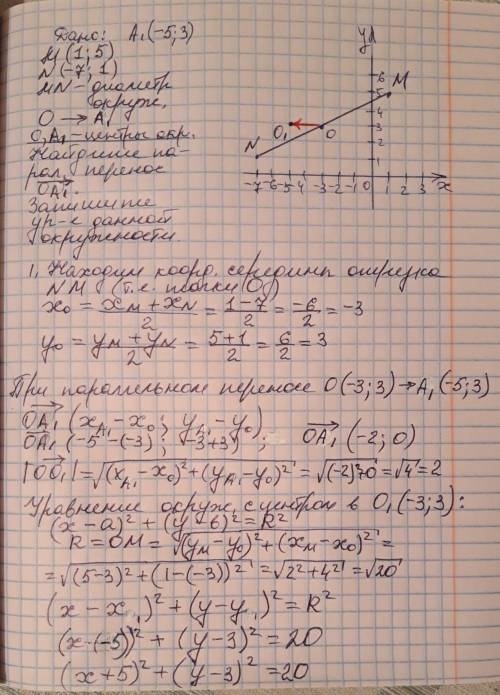 Дано: A₁(-5;3)
M(1;5)
N(-7;1)
MN - диаметр
окруж.
O → A₁
O, A₁ - центры окр.
Найдите па-
рал. перенос
OA₁.
Запишите
ур-е данной
окружности.
y
6
5
M
4
3
O₁
O
2
N
1
-7 -6 -5 -4 -3 -2 -1 0 1 2 3 x
1, Находим коорд. середины отрезка
NM (т.е. точки O)
x₀ = xM + xN / 2 = 1-7 / 2 = -6 / 2 = -3
y₀ = yM + yN / 2 = 5+1 / 2 = 6 / 2 = 3
При параллельном переносе O(-3;3) → A₁(-5;3)
OA₁ (xA₁ - x₀; yA₁ - y₀)
OA₁ (-5 -(-3); -3+3); OA₁ (-2; 0)
|OO₁| = √(xA₁ - x₀)² + (yA₁ - y₀)² = √(-2)²+0 = √4 = 2
Уравнение окруж. с центром в O₁(-3;3):
(x - a)² + (y - b)² = R²
R = OM = √(yM - y₀)² + (xM - x₀)² =
= √(5-3)² + (1-(-3))² = √2² + 4² = √20
(x - x₁)² + (y - y₁)² = R²
(x -(-5))² + (y - 3)² = 20
(x + 5)² + (y - 3)² = 20